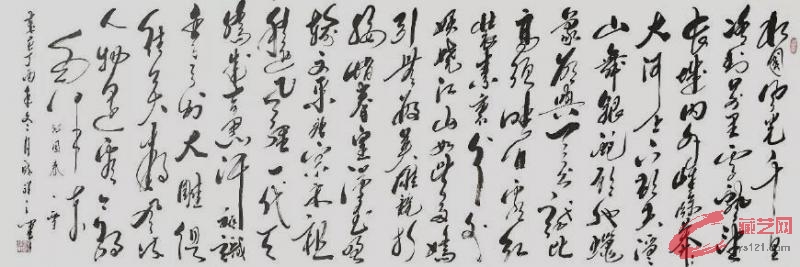 北國風光千里
冰封万里雪飘望
长城内外惟馀莽々
大河上下顿失滔々
山舞银蛇原驰蜡
象欲与天公试比
高须晴日看红
装素裹分外
妖娆江山如此多娇
引无数英雄竞折
腰惜秦皇汉武略
输文采唐宗宋祖
稍逊风骚一代天
骄成吉思汗只识
弯弓射大雕俱
往矣数风流
人物还看今朝
沁园春 雪
丁酉年冬月
藏艺网
ys121.com